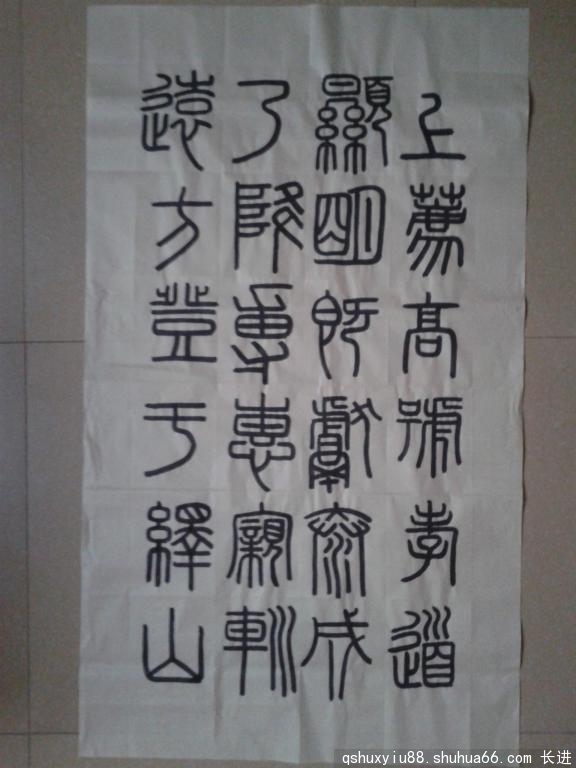 上薦高號孝道
顯明既獻泰成
乃降專惠寴軔
遠方登于繹山
qshuxyiu88.shuhua66.com 长进